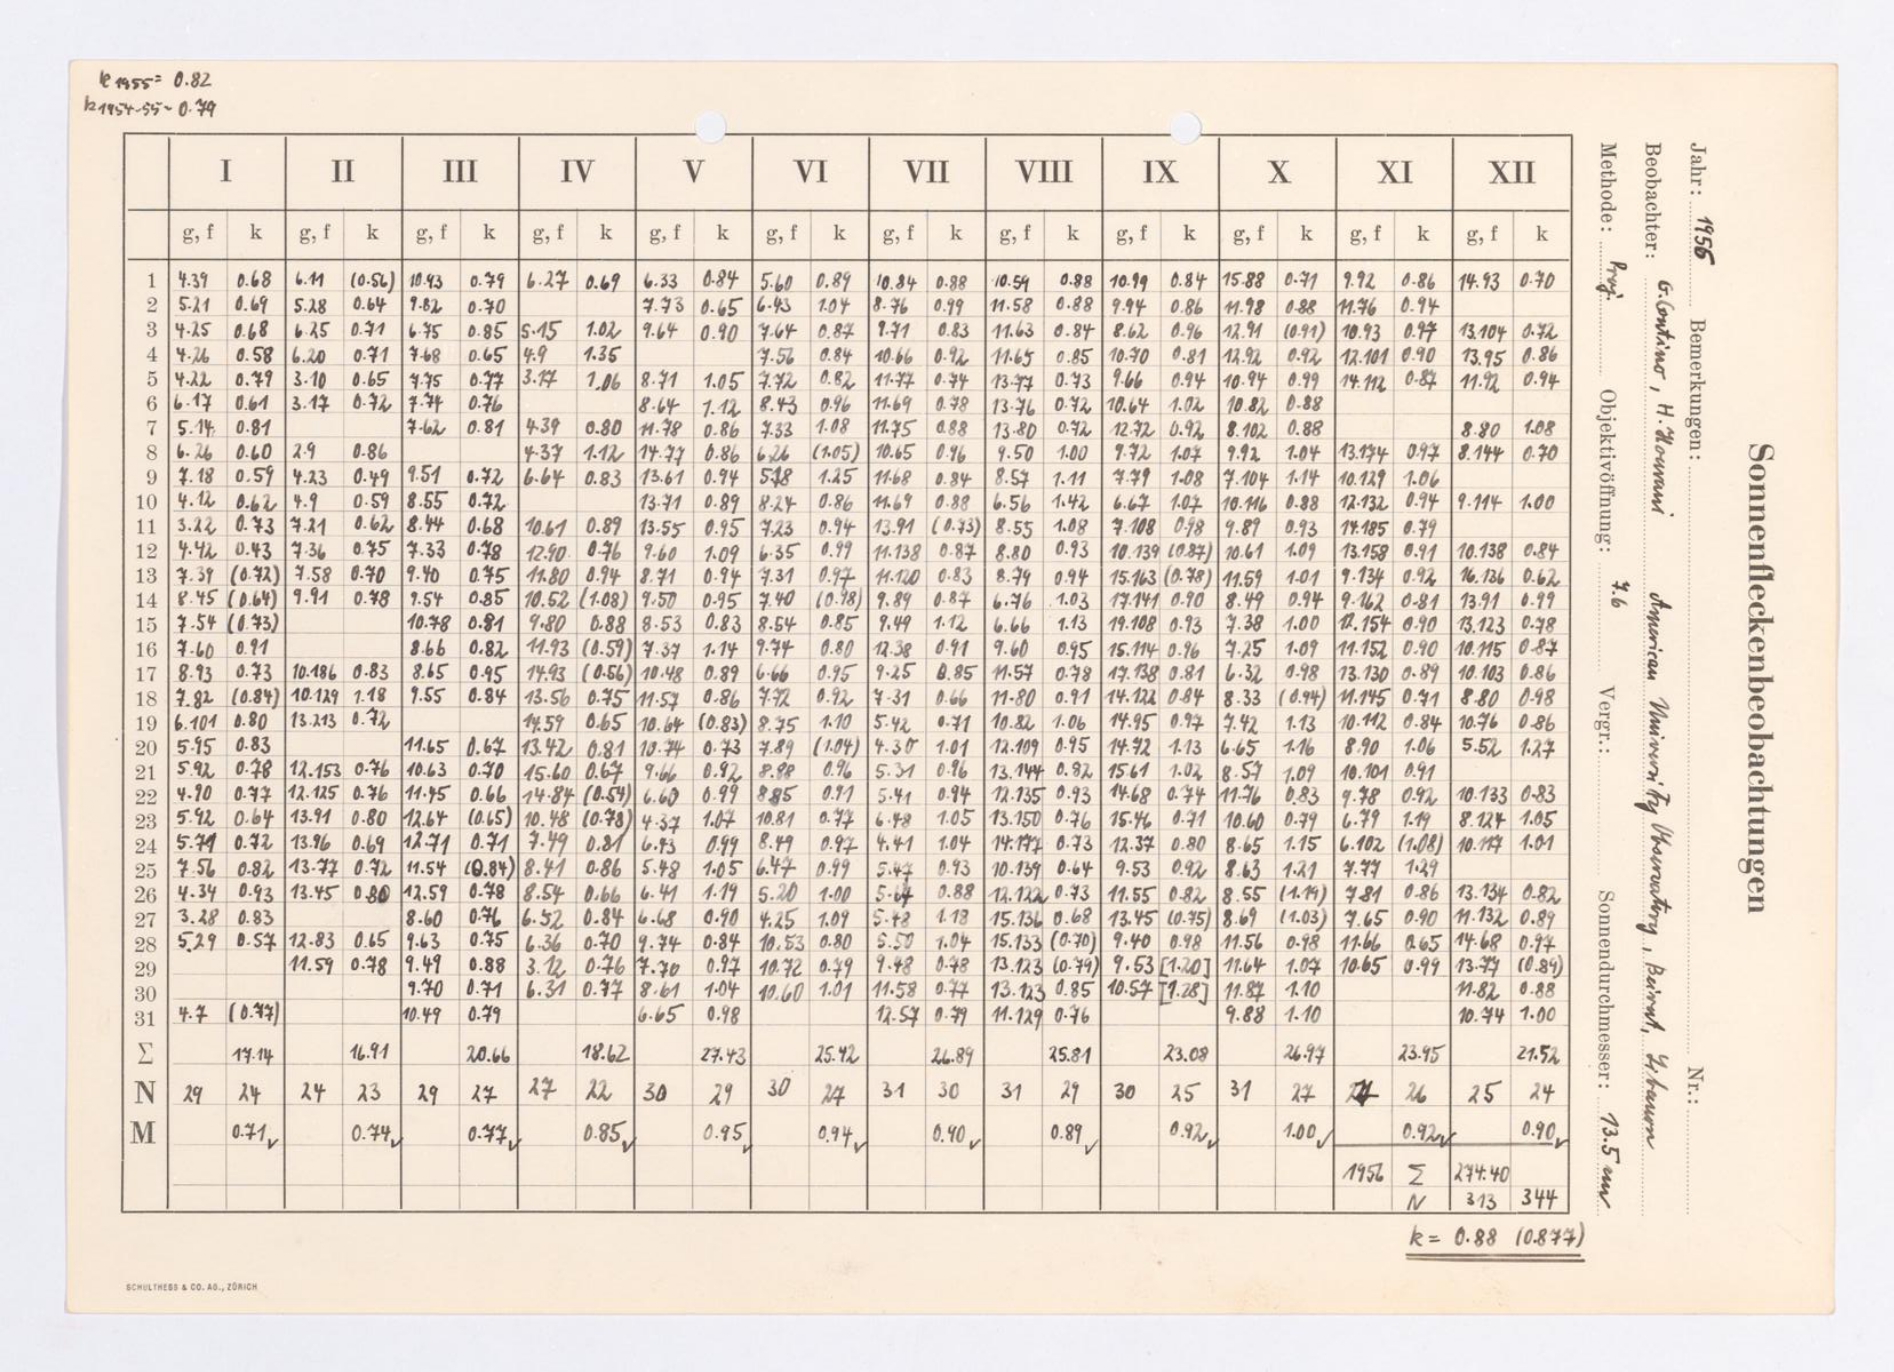 k 1955 = 0.82
k 1954-55 = 0.79
I II III IV V VI VII VIII IX X XI XII
g, f k g, f k g, f k g, f k g, f k g, f k g, f k g, f k g, f k g, f k g, f k g, f k
1 4.39 0.68 6.11 (0.56) 10.93 0.79 6.27 0.69 6.33 0.84 5.60 0.89 10.84 0.88 10.59 0.88 10.99 0.84 15.88 0.71 9.92 0.86 14.93 0.70
2 5.21 0.69 5.28 0.64 9.82 0.70 7.73 0.65 6.43 1.04 8.76 0.99 11.58 0.88 9.94 0.86 11.98 0.88 11.76 0.94
3 4.25 0.68 6.25 0.71 6.75 0.85 5.15 1.02 9.64 0.90 7.64 0.87 9.71 0.83 11.63 0.84 8.62 0.96 12.91 (0.91) 10.93 0.97 13.104 0.72
4 4.26 0.58 6.20 0.71 7.68 0.65 4.9 1.35 7.56 0.84 10.66 0.92 11.65 0.85 10.70 0.81 12.92 0.92 12.101 0.90 13.95 0.86
5 4.22 0.79 3.10 0.65 7.75 0.77 3.17 1.06 8.71 1.05 7.72 0.82 11.77 0.74 13.77 0.73 9.66 0.94 10.94 0.99 14.112 0.87 11.92 0.94
6 6.17 0.61 3.17 0.72 7.74 0.76 8.64 1.12 8.43 0.96 11.69 0.78 13.76 0.72 10.64 1.02 10.82 0.88
7 5.14 0.81 7.62 0.81 4.39 0.80 11.78 0.86 7.33 1.08 11.75 0.88 13.80 0.72 12.72 0.92 8.102 0.88 8.80 1.08
8 6.26 0.60 2.9 0.86 4.37 1.12 14.77 0.86 6.26 (1.05) 10.65 0.96 9.50 1.00 9.72 1.07 9.92 1.04 13.174 0.97 8.144 0.70
9 7.18 0.59 4.23 0.49 9.51 0.72 6.64 0.83 13.61 0.94 5.18 1.25 11.68 0.84 8.57 1.11 7.79 1.08 7.104 1.14 10.129 1.06
10 4.12 0.62 4.9 0.59 8.55 0.72 13.71 0.89 8.24 0.86 11.69 0.88 6.56 1.42 6.67 1.07 10.116 0.88 12.132 0.94 9.114 1.00
11 3.22 0.73 7.21 0.62 8.44 0.68 10.61 0.89 13.55 0.95 7.23 0.94 13.91 (0.73) 8.55 1.08 7.108 0.98 9.89 0.93 14.185 0.79
12 4.42 0.43 7.36 0.75 7.33 0.78 12.90 0.76 9.60 1.09 6.35 0.99 11.138 0.87 8.80 0.93 10.139 (0.87) 10.61 1.09 13.158 0.91 10.138 0.84
13 7.39 (0.72) 7.58 0.70 9.40 0.75 11.80 0.94 8.71 0.94 7.31 0.97 11.120 0.83 8.79 0.94 15.163 (0.78) 11.59 1.01 9.134 0.92 16.136 0.62
14 8.45 (0.64) 9.91 0.78 9.54 0.85 10.52 (1.08) 9.50 0.95 7.40 (0.98) 9.89 0.87 6.76 1.03 17.141 0.90 8.49 0.94 9.162 0.81 13.91 0.99
15 7.54 (0.73) 10.78 0.81 9.80 0.88 8.53 0.83 8.54 0.85 9.49 1.12 6.66 1.13 19.108 0.93 7.38 1.00 12.154 0.90 13.123 0.78
16 7.60 0.91 8.66 0.82 11.93 (0.59) 7.37 1.14 9.74 0.80 12.38 0.91 9.60 0.95 15.114 0.96 7.25 1.09 11.152 0.90 10.115 0.87
17 8.93 0.73 10.186 0.83 8.65 0.95 14.93 (0.56) 10.48 0.89 6.66 0.95 9.25 0.85 11.57 0.78 17.138 0.81 6.32 0.98 13.130 0.89 10.103 0.86
18 7.82 (0.84) 10.129 1.18 9.55 0.84 13.56 0.75 11.57 0.86 7.72 0.92 7.31 0.66 11.80 0.91 14.122 0.84 8.33 (0.94) 11.145 0.71 8.80 0.98
19 6.101 0.80 13.213 0.72 14.59 0.65 10.64 (0.83) 8.75 1.10 5.42 0.71 10.82 1.06 14.95 0.97 7.42 1.13 10.112 0.84 10.76 0.86
20 5.95 0.83 11.65 0.67 13.42 0.81 10.74 0.73 7.89 (1.04) 4.30 1.01 12.109 0.95 14.72 1.13 6.65 1.16 8.90 1.06 5.52 1.27
21 5.92 0.78 12.153 0.76 10.63 0.70 15.60 0.67 9.66 0.92 8.88 0.96 5.31 0.96 13.144 0.82 15.61 1.02 8.57 1.09 10.101 0.91
22 4.90 0.77 12.125 0.76 11.45 0.66 14.84 (0.54) 6.60 0.99 8.85 0.91 5.41 0.94 12.135 0.93 14.68 0.74 11.76 0.83 9.78 0.92 10.133 0.83
23 5.92 0.64 13.91 0.80 12.64 (0.65) 10.48 (0.78) 4.37 1.07 10.81 0.77 6.48 1.05 13.150 0.76 15.46 0.71 10.60 0.79 6.79 1.19 8.124 1.05
24 5.79 0.72 13.96 0.69 12.71 0.71 7.49 0.81 6.43 0.99 8.49 0.97 4.41 1.04 14.177 0.73 12.37 0.80 8.65 1.15 6.102 (1.08) 10.117 1.01
25 7.56 0.82 13.77 0.72 11.54 (0.84) 8.41 0.86 5.48 1.05 6.47 0.99 5.47 0.93 10.139 0.64 9.53 0.92 8.63 1.21 7.77 1.29
26 4.34 0.93 13.45 0.80 12.59 0.78 8.54 0.66 6.41 1.19 5.20 1.00 5.64 0.88 12.122 0.73 11.55 0.82 8.55 (1.19) 7.81 0.86 13.134 0.82
27 3.28 0.83 8.60 0.76 6.52 0.84 6.68 0.90 4.25 1.09 5.48 1.18 15.136 0.68 13.45 (0.75) 8.69 (1.03) 7.65 0.90 11.132 0.89
28 5.29 0.57 12.83 0.65 9.63 0.75 6.36 0.70 9.74 0.84 10.53 0.80 5.50 1.04 15.133 (0.70) 9.40 0.98 11.56 0.98 11.66 0.65 14.68 0.97
29 11.59 0.78 9.49 0.88 3.12 0.76 7.70 0.97 10.72 0.79 9.48 0.78 13.123 (0.79) 9.53 [1.20] 11.64 1.07 10.65 0.99 13.77 (0.89)
30 9.70 0.71 6.31 0.77 8.61 1.04 10.60 1.01 11.58 0.77 13.123 0.85 10.57 [1.28] 11.87 1.10 11.82 0.88
31 4.7 (0.77) 10.49 0.79 6.65 0.98 12.57 0.79 11.129 0.76 9.88 1.10 10.74 1.00
Σ 17.14 16.91 20.66 18.62 27.43 25.42 26.89 25.81 23.08 26.97 23.95 21.52
N 29 24 24 23 29 27 27 22 30 29 30 27 31 30 31 29 30 25 31 27 26 25 24
M 0.71 0.74 0.77 0.85 0.95 0.94 0.90 0.89 0.92 1.00 0.92 0.90
1956 Σ 274.40
N 313 344
k = 0.88 (0.877)
SCHULTHESS & CO. AG., ZÜRICH
Sonnenfleckenbeobachtungen
Jahr: 1956 Bemerkungen: Nr.:
Beobachter: G. Contino, H. Hourani American University Observatory, Beirut, Lebanon
Methode: Proj. Objektivöffnung: 7.6 Vergr.: Sonnendurchmesser: 13.5 cm